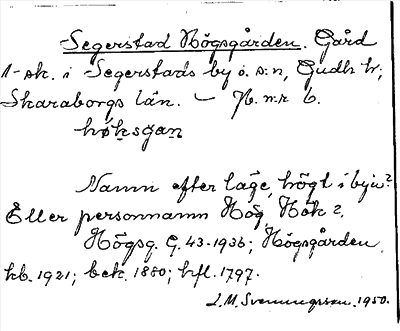 Segerstad Högsgården. Gård
1-sk. i Segerstads by o. s:n, Gudh. hr,
Skaraborgs län. — Jb. n:r 6.
høksgan
Namn efter läge, högt i byn?
Eller personnamn Hög, Hök?
Högsg. G. 43-1936; Högsgården
kb. 1921; bek. 1880; hfl. 1797.
J. M. Svenungsson. 1950.